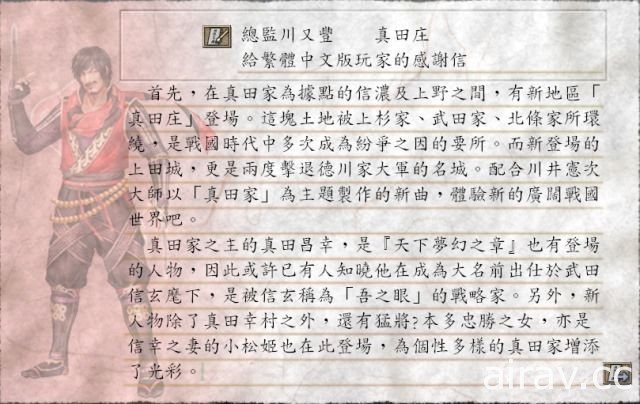 總監川又豐　　真田庄
給繁體中文版玩家的感謝信
首先，在真田家為據點的信濃及上野之間，有新地區「
真田庄」登場。這塊土地被上杉家、武田家、北條家所環
繞，是戰國時代中多次成為紛爭之因的要所。而新登場的
上田城，更是兩度擊退德川家大軍的名城。配合川井憲次
大師以「真田家」為主題製作的新曲，體驗新的廣闊戰國
世界吧。
真田家之主的真田昌幸，是『天下夢幻之章』也有登場
的人物，因此或許已有人知曉他在成為大名前出仕於武田
信玄麾下，是被信玄稱為「吾之眼」的戰略家。另外，新
人物除了真田幸村之外，還有猛將?本多忠勝之女，亦是
信幸之妻的小松姬也在此登場，為個性多樣的真田家增添
了光彩。
airav.cc